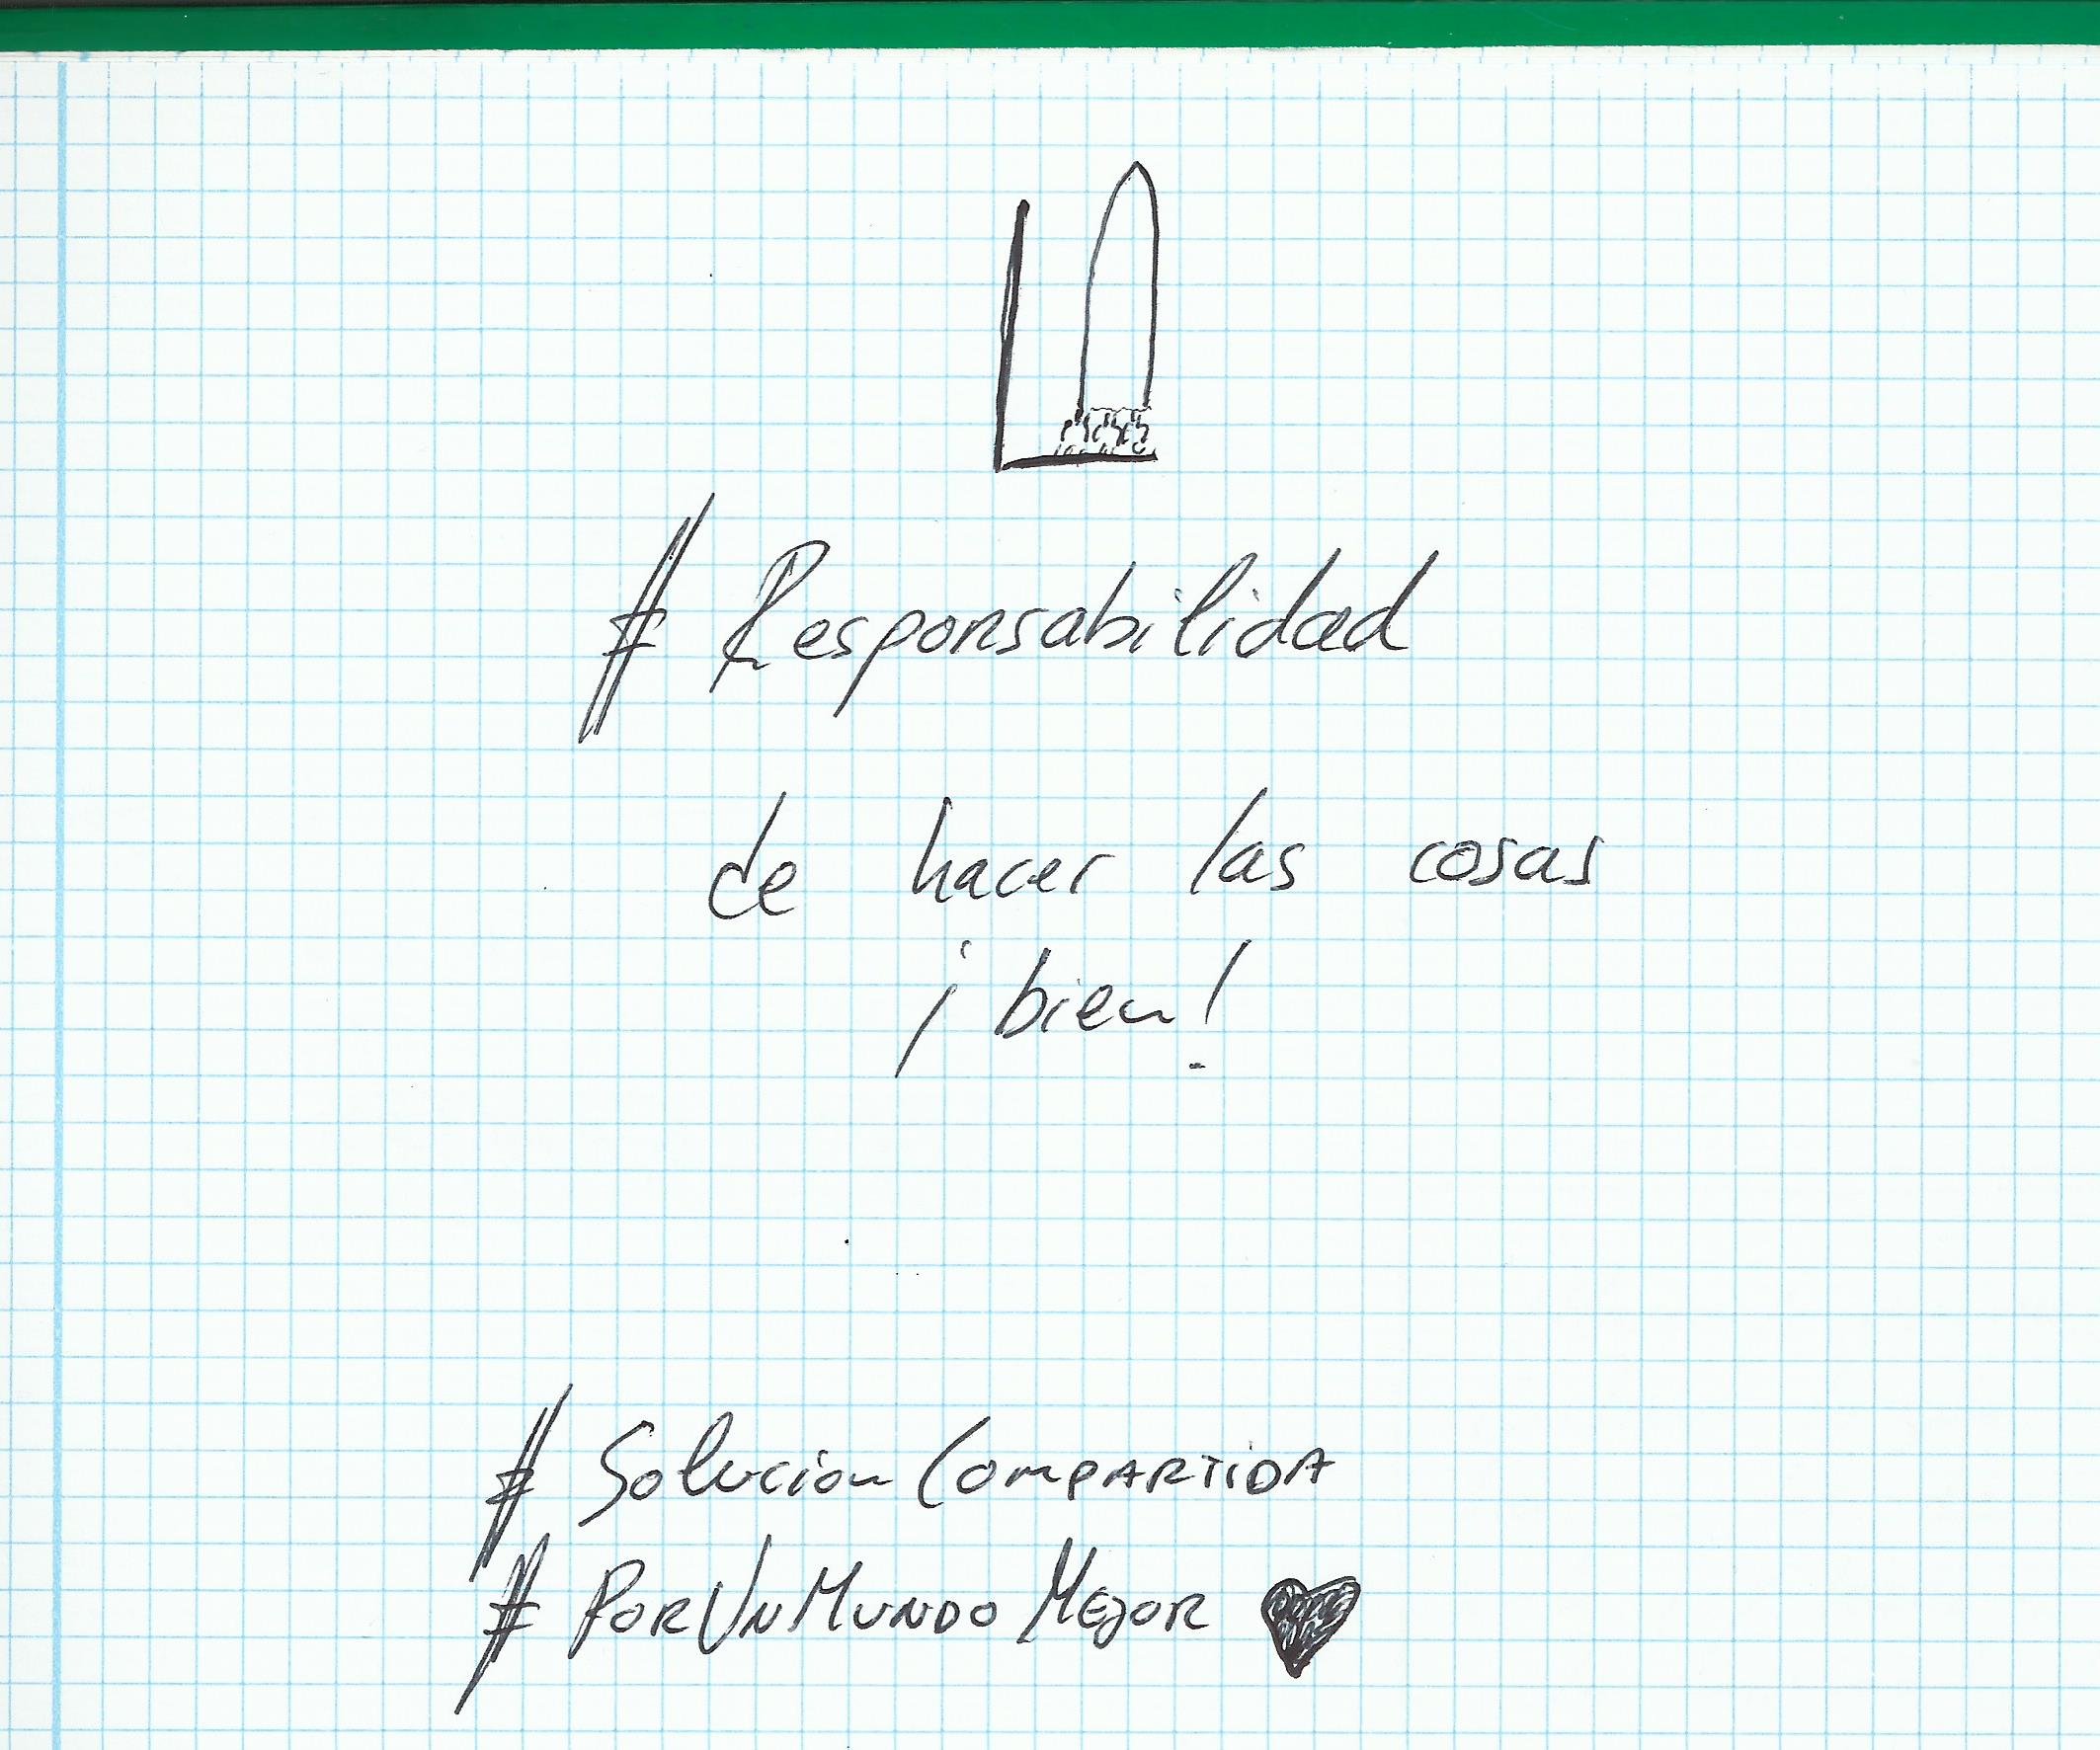 # Responsabilidad
de hacer las cosas
¡bien!
# SolucionCompartida
# PorUnMundoMejor ♥